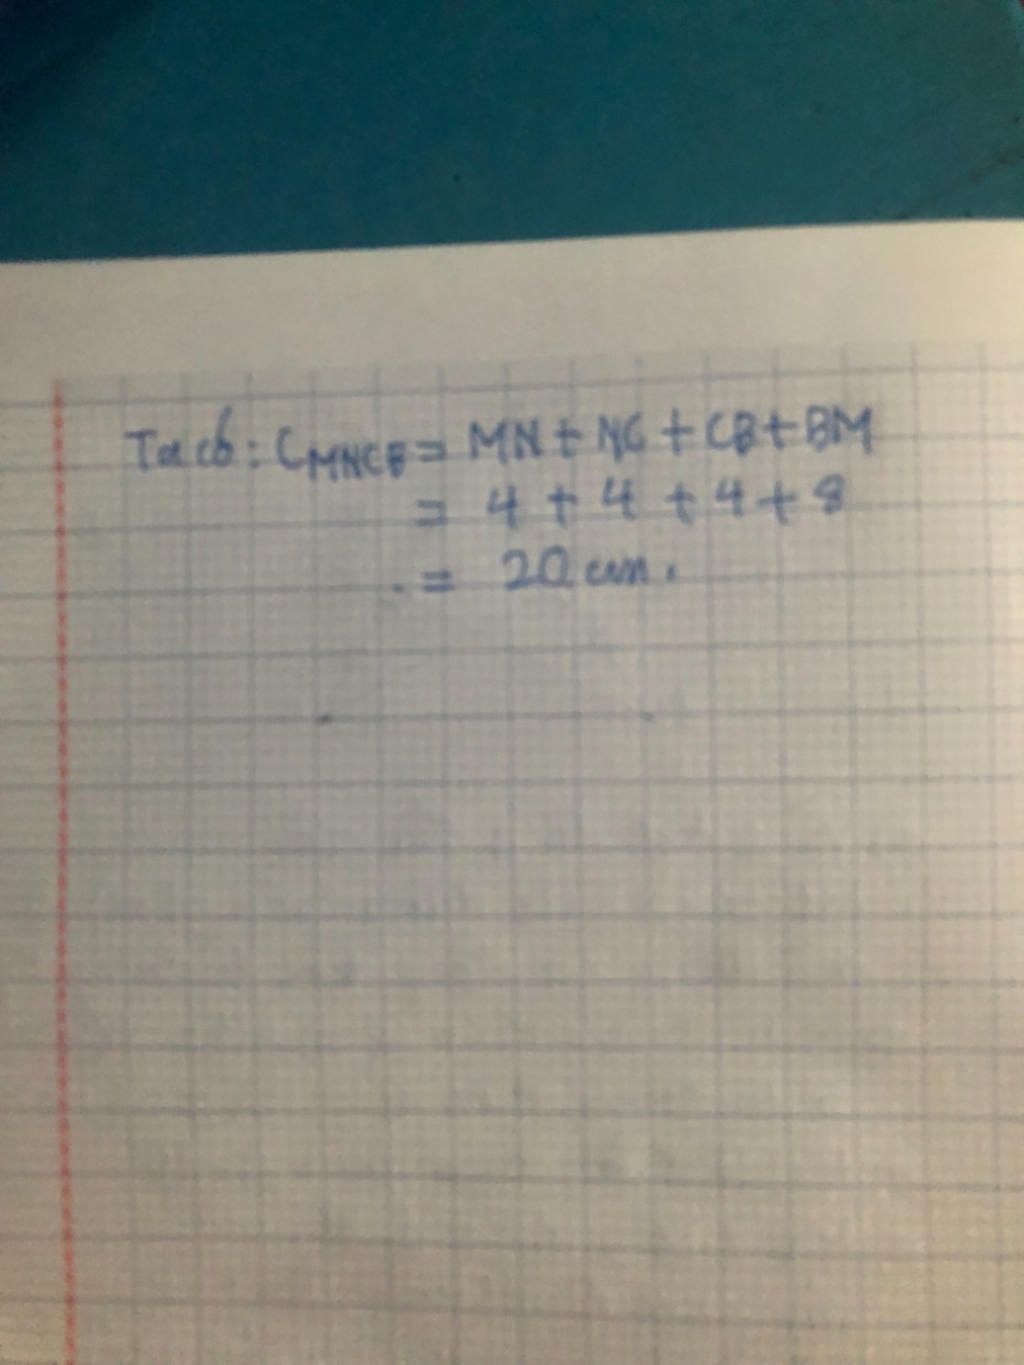 Ta có: CMNCB = MN + NC + CB + BM
= 4 + 4 + 4 + 8
= 20 cm.